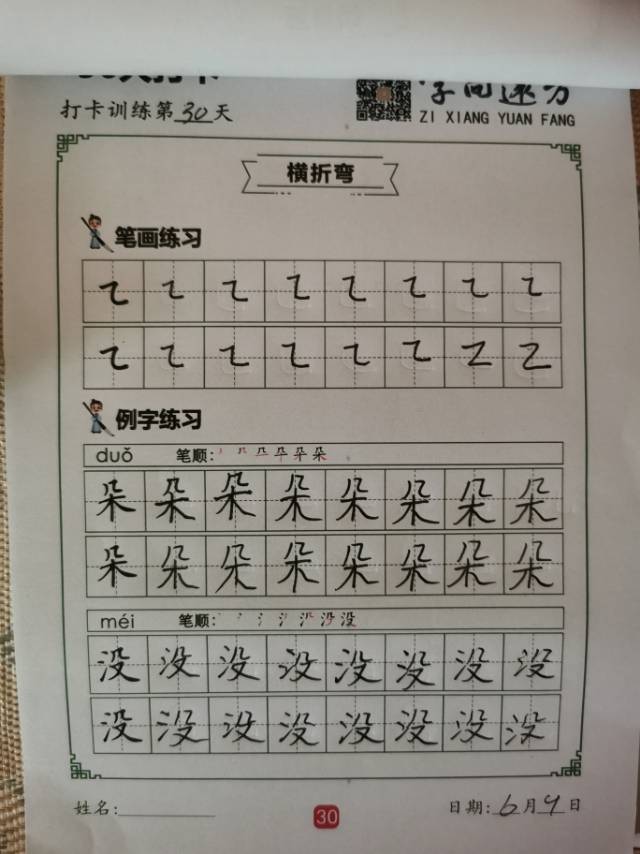 打卡训练第30天
ZI XIANG YUAN FANG
横折弯
笔画练习
例字练习
duǒ 笔顺:
朵朵朵朵朵朵朵朵
朵朵朵朵朵朵朵朵
méi 笔顺:
没没没没没没没没
没没没没没没没没
姓名: 30 日期:6月9日